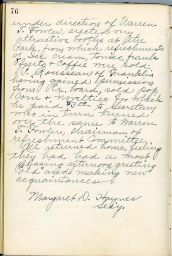 76
under direction of Warren
T. Fowler, erected an
attractive booth at the
Park, from which refreshments
of ice cream, tonics, frank-
furts & coffee was sold.
P. Rousseau of Franklin
having gained permission
from the board, sold pop
corn & novelties for which
he paid to Secretary
who in turn turned
over the same to Warren
T. Fowler, chairman of
refreshment committee.
All returned home, feeling
they had had a most
pleasing afternoon, greeting
old and making new
acquaintances.
Margaret D. Haynes
Secy.